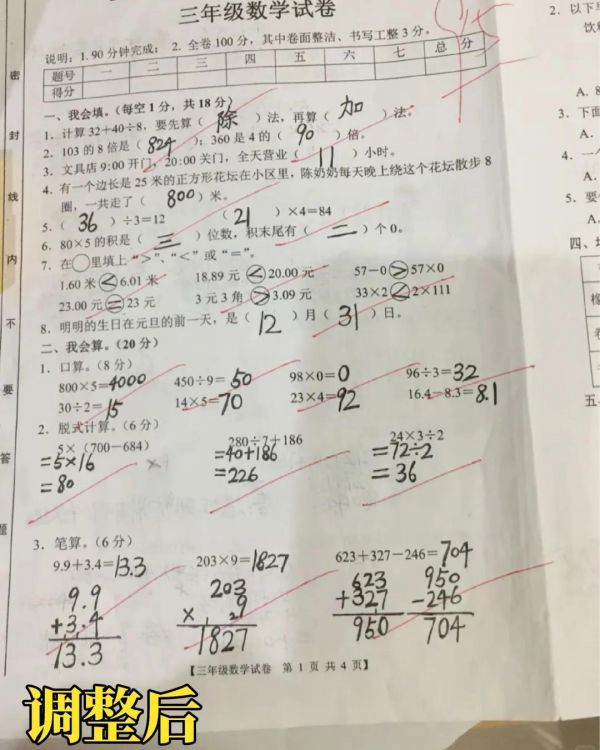 三年级数学试卷
说明：1. 90 分钟完成； 2. 全卷 100 分，其中卷面整洁、书写工整 3 分。
题号 一 二 三 四 五 六 七 总 分
得分
一、我会填。（每空 1 分，共 18 分）
1. 计算 32＋40÷8，要先算（ 除 ）法，再算（ 加 ）法。
2. 103 的 8 倍是（ 824 ）；360 是 4 的（ 90 ）倍。
3. 文具店 9:00 开门，20:00 关门，全天营业（ 11 ）小时。
4. 有一个边长是 25 米的正方形花坛在小区里，陈奶奶每天晚上绕这个花坛散步 8
圈，一共走了（ 800 ）米。
5.（ 36 ）÷3=12 （ 21 ）×4=84
6. 80×5 的积是（ 三 ）位数，积末尾有（ 二 ）个 0。
7. 在○里填上“>”、“<”或“=”。
1.60 米 < 6.01 米 18.89 元 < 20.00 元 57－0 > 57×0
23.00 元 = 23 元 3 元 3 角 > 3.09 元 33×2 < 2×111
8. 明明的生日在元旦的前一天，是（ 12 ）月（ 31 ）日。
二、我会算。（20 分）
1. 口算。（8 分）
800×5=4000 450÷9= 50 98×0=0 96÷3=32
30÷2=15 14×5=70 23×4=92 16.4－8.3=8.1
2. 脱式计算。（6 分）
5×（700－684） 280÷7＋186 24×3÷2
=5×16 =40+186 =72÷2
=80 =226 =36
3. 笔算。（6 分）
9.9＋3.4=13.3 203×9=1827 623＋327－246=704
9.9 203 623 950
+3.4 × 9 +327 -246
13.3 1827 950 704
【三年级数学试卷 第 1 页 共 4 页】
调整后
密
封
线
内
不
要
答
题
2. 以下
饮料
A. 8
3. 下面
A.
4. 一
A.
5. 要
A.
四、
五、